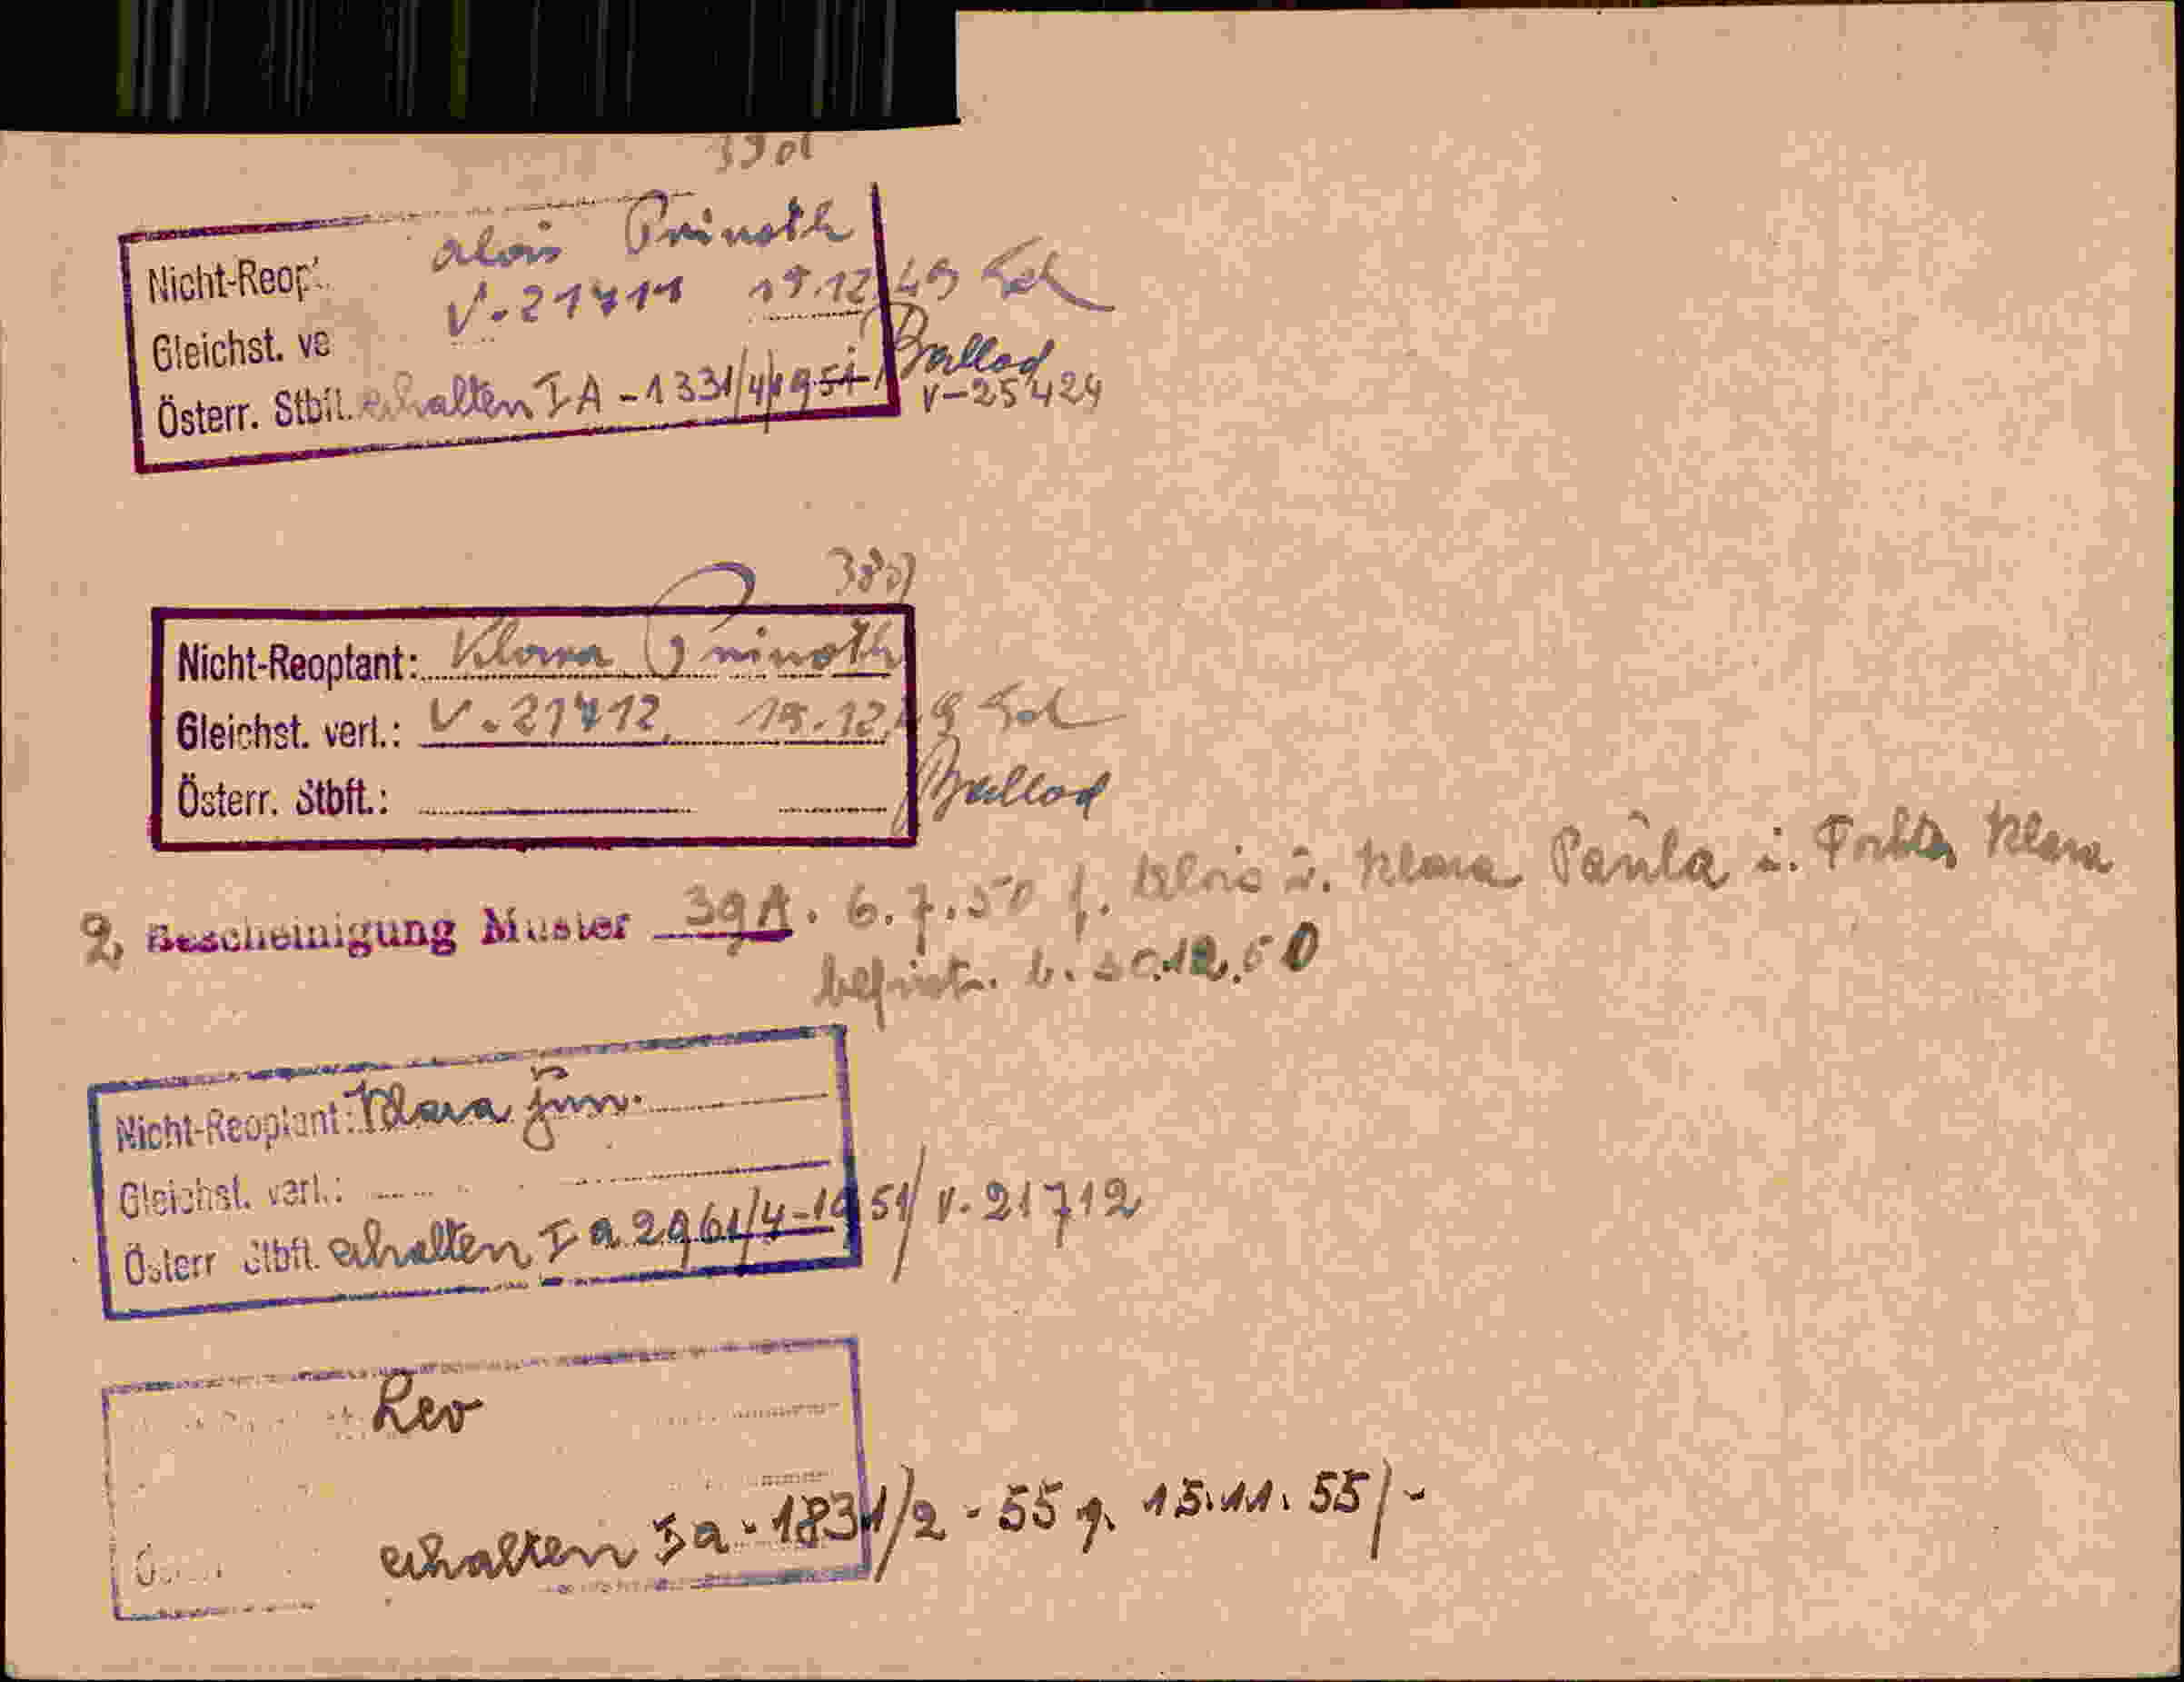 Nicht-Reopt. Alois Prinoth
Gleichst. ve V.21711 19.12.49
Österr. Stbft. erhalten I A - 1331/4/1951/ Ballod
V-25424
Nicht-Reoptant: Klara Prinoth
Gleichst. verl.: V.21712, 19.12.49
Österr. Stbft.: Ballod
2, Bescheinigung Muster 39A. 6.7.50 f. Alois u. Klara Paula u. Klara
befrist. b. 12.50
Nicht-Reoptant: Klara jun.
Gleichst. verl.:
Österr Stbft. erhalten I a 2961/4-1951/ V. 21712
Leo
erhalten I a - 1831/2 - 55 15.11.55/-